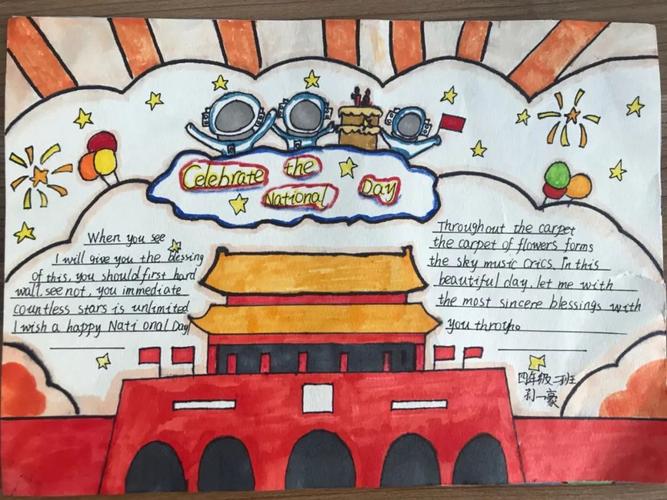 Celebrate the
National Day
When you see
I will give you the blessing
of this, you should first hard
wall, see not, you immediate
countless stars is unlimited
I wish a happy Nati onal Day
Throughout the carpet
the carpet of flowers forms
the sky music crics. In this
beautiful day, let me with
the most sincere blessings with
you throgho
四年级二班
刘一豪